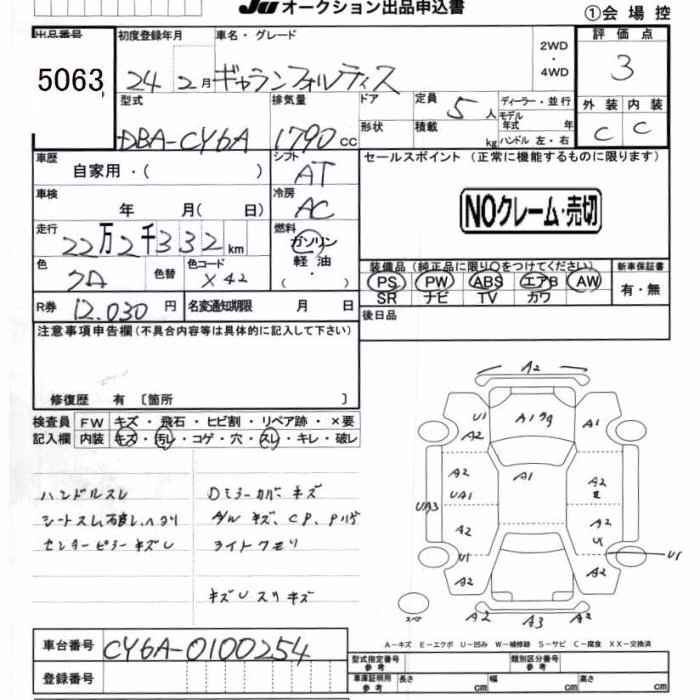 JU オークション出品申込書
①会場控
出品番号 初度登録年月 車名・グレード 2WD・4WD 評価点
5063 24年2月 ギャランフォルティス 3
型式 排気量 ドア 定員 5人 ディーラー・並行 外装 内装
DBA-CY6A 1790cc 形状 積載 kg モデル年式 年 ハンドル 左・右 C C
車歴 自家用・( ) シフト AT セールスポイント(正常に機能するものに限ります)
車検 年 月( 日) 冷房 AC NOクレーム・売切
走行 22万2千332km 燃料 ガソリン 軽油・( )
装備品(純正品に限り○をつけてください) 新車保証書
色 色替 色コード X42 PS PW ABS エアB AW 有・無
SR ナビ TV カワ
R券 12,030円 名変通知期限 月 日 後日品
注意事項申告欄(不具合内容等は具体的に記入して下さい)
修復歴 有〔箇所 〕
検査員 FW キズ・飛石・ヒビ割・リペア跡・×要
記入欄 内装 キズ・汚レ・コゲ・穴・スレ・キレ・破レ
ハンドルスレ Dミラーカバーキズ
シートスレ
センターピラーキズU ライトクモリ
キズUスリキズ
A2
U1 A1 A1
A2
A2 A1 A2
UA3 UA1 E
A2 A2
U1 U1 U1
A2 A2
スペア A2 A3 A2
A-キズ E-エクボ U-凹み W-補修跡 S-サビ C-腐食 XX-交換済
車台番号 CY6A-0100254
型式指定番号 参考 類別区分番号 参考
登録番号 車庫証明用 参考 長さ cm 幅 cm 高さ cm